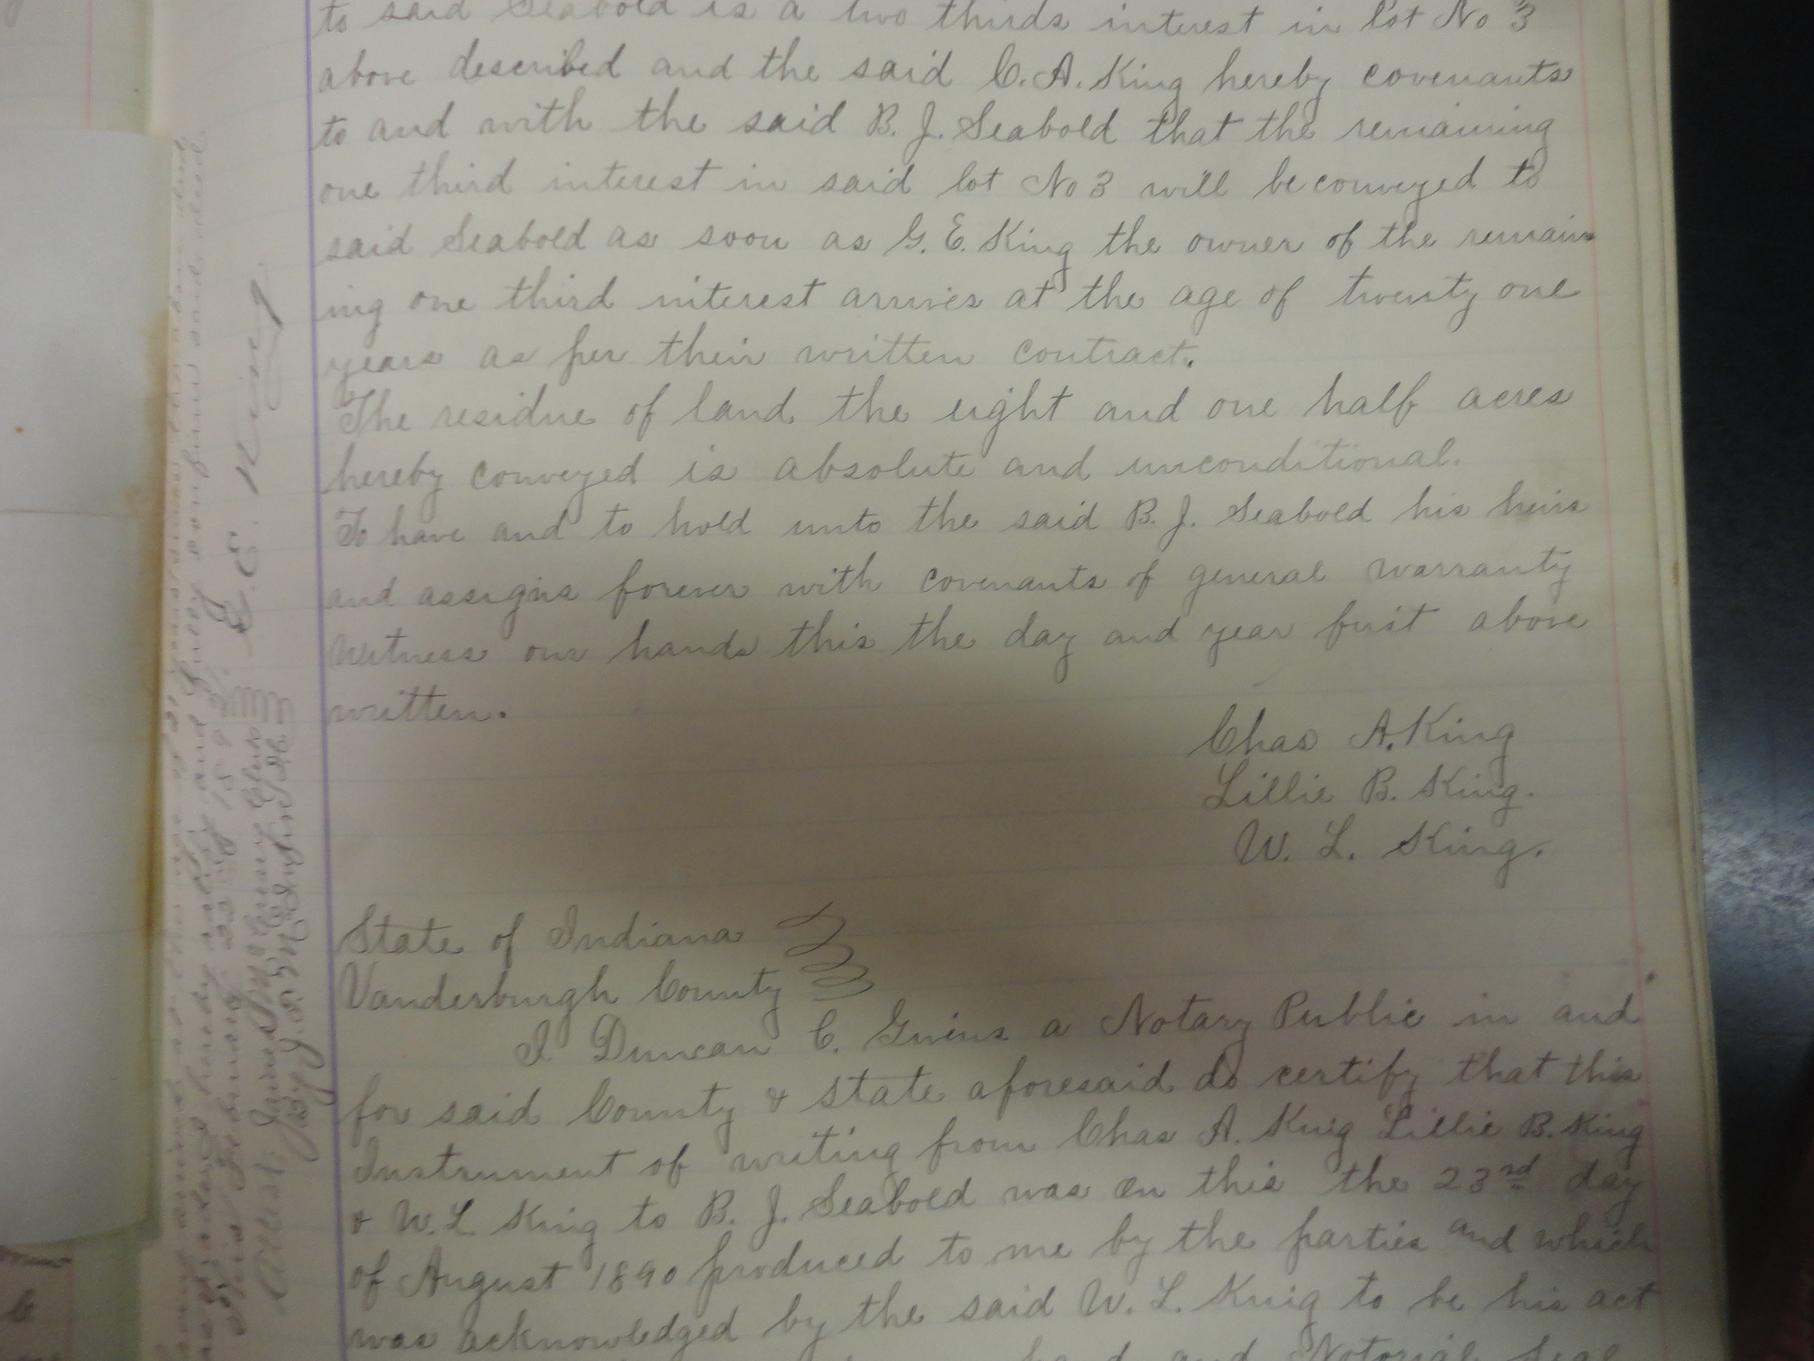 to said Seabold is a two thirds interest in lot No 3
above described and the said C. A. King hereby covenants
to and with the said B. J. Seabold that the remaining
one third interest in said lot No 3 will be conveyed to
said Seabold as soon as G. E. King the owner of the remain
ing one third interest arrives at the age of twenty one
years as per their written contract.
The residue of land the eight and one half acres
hereby conveyed is absolute and unconditional.
To have and to hold unto the said B. J. Seabold his heirs
and assigns forever with covenants of general warranty
Witness our hands this the day and year first above
written.
Chas A. King
Lillie B. King.
W. L. King.
State of Indiana
Vanderburgh County
I Duncan C. Givins a Notary Public in and
for said County & State aforesaid do certify that this
Instrument of writing from Chas A. King Lillie B. King
& W. L. King to B. J. Seabold was on this the 23rd day
of August 1890 produced to me by the parties and which
was acknowledged by the said W. L. King to be his act
hand and Notorial Seal
age of 21 years
hereby ratify and fully confirm said deed
This February 22 189
G. E. King
Attest. Clerk
By